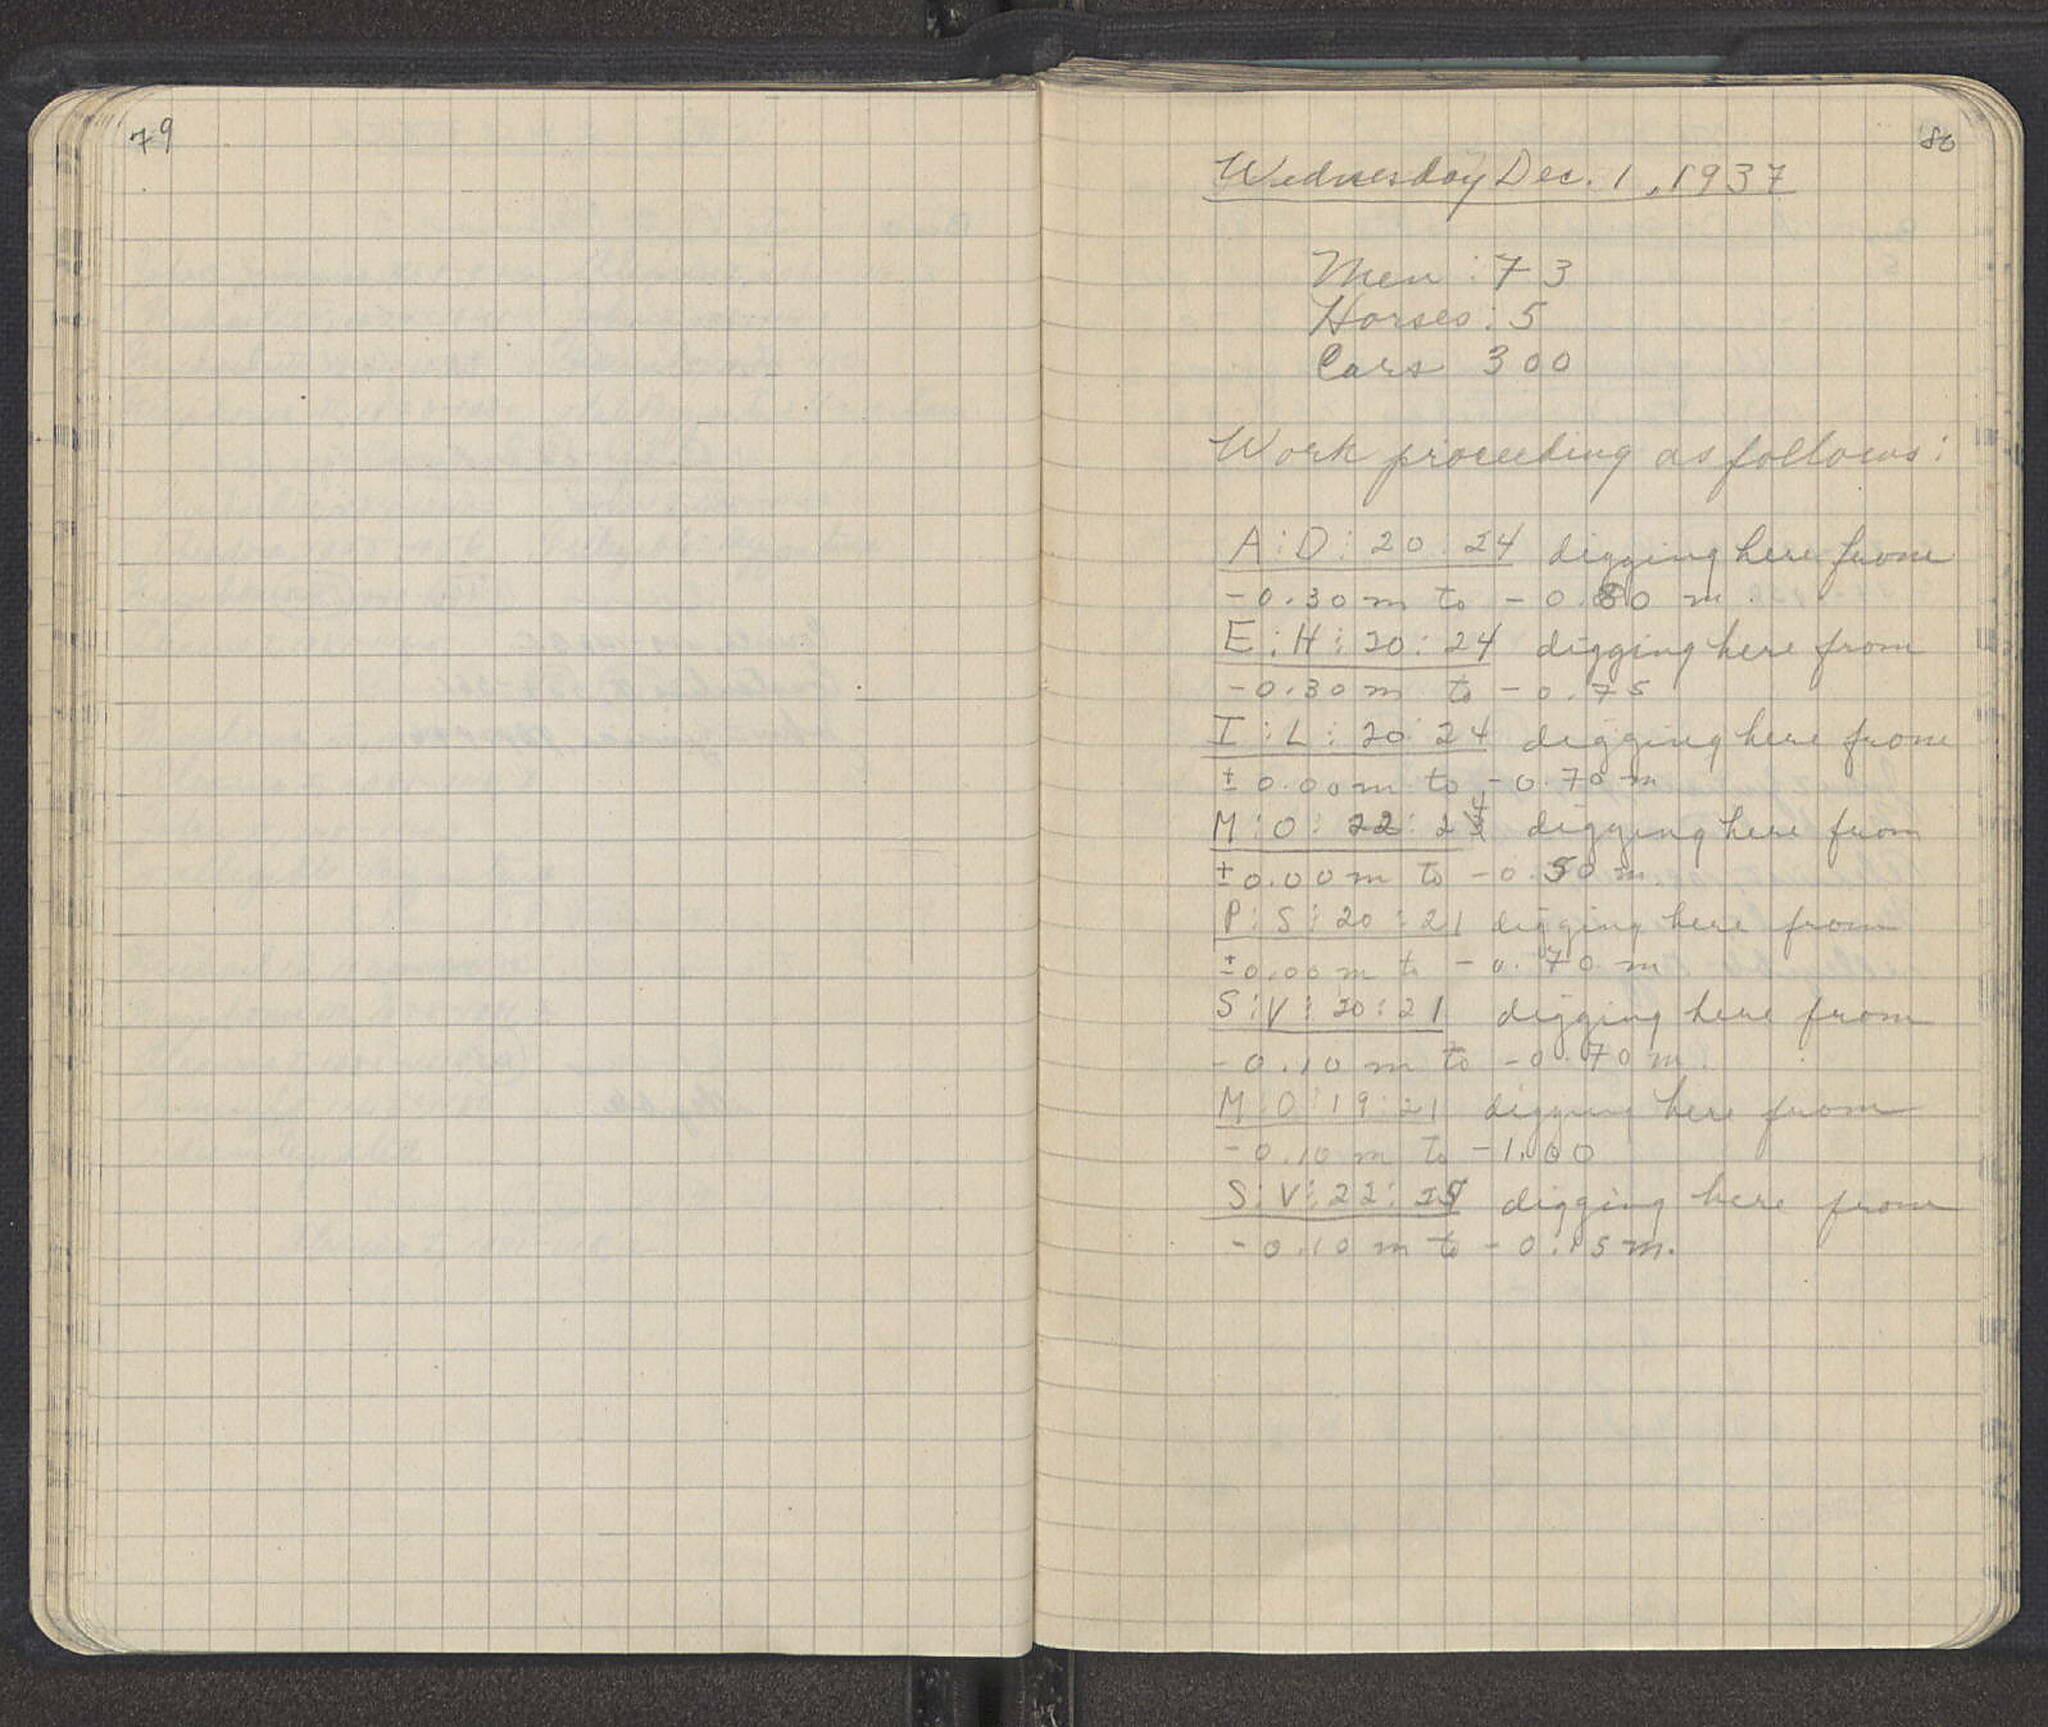 79
80
Wednesday Dec. 1, 1937
Men : 73
Horses : 5
Cars 300
Work proceeding as follows :
A : D : 20 : 24 digging here from
- 0.30 m to - 0.80 m.
E : H : 20 : 24 digging here from
- 0.30 m to - 0.75
I : L : 20 : 24 digging here from
± 0.00 m to - 0.70 m
M : O : 22 : 24 digging here from
± 0.00 m to - 0.50 m.
P : S : 20 : 21 digging here from
± 0.00 m to - 0.70 m
S : V : 20 : 21 digging here from
- 0.10 m to - 0.70 m.
M : O : 19 : 21 digging here from
- 0.10 m to - 1.00
S : V : 22 : digging here from
- 0.10 m to - 0.15 m.